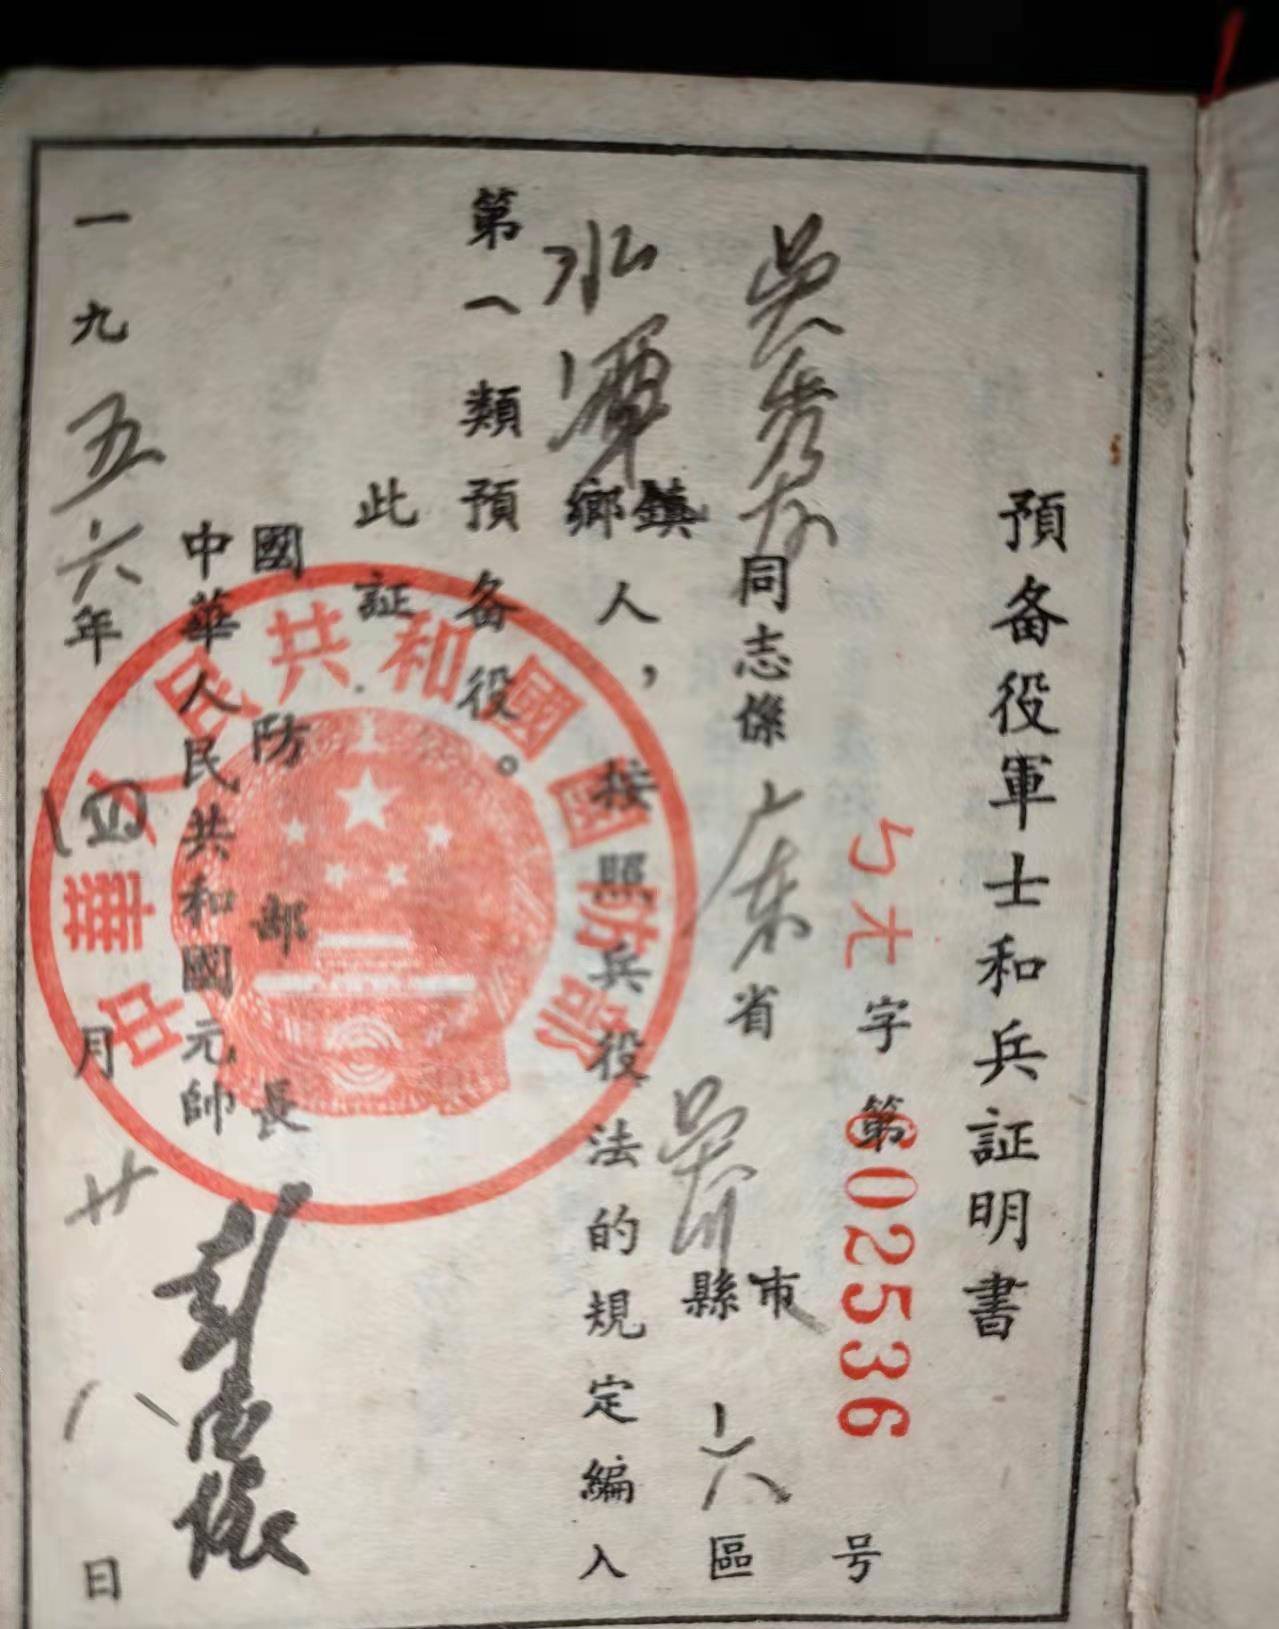 預备役軍士和兵証明書
字第6025536号
吳秀 同志係广东省吳川縣市六區
水潭鄉鎮人，按照兵役法的規定編入
第一類預备役。
此証
國防部長
中華人民共和國元帥 彭德懷
一九五六年四月廿八日
中華人民共和國國防部